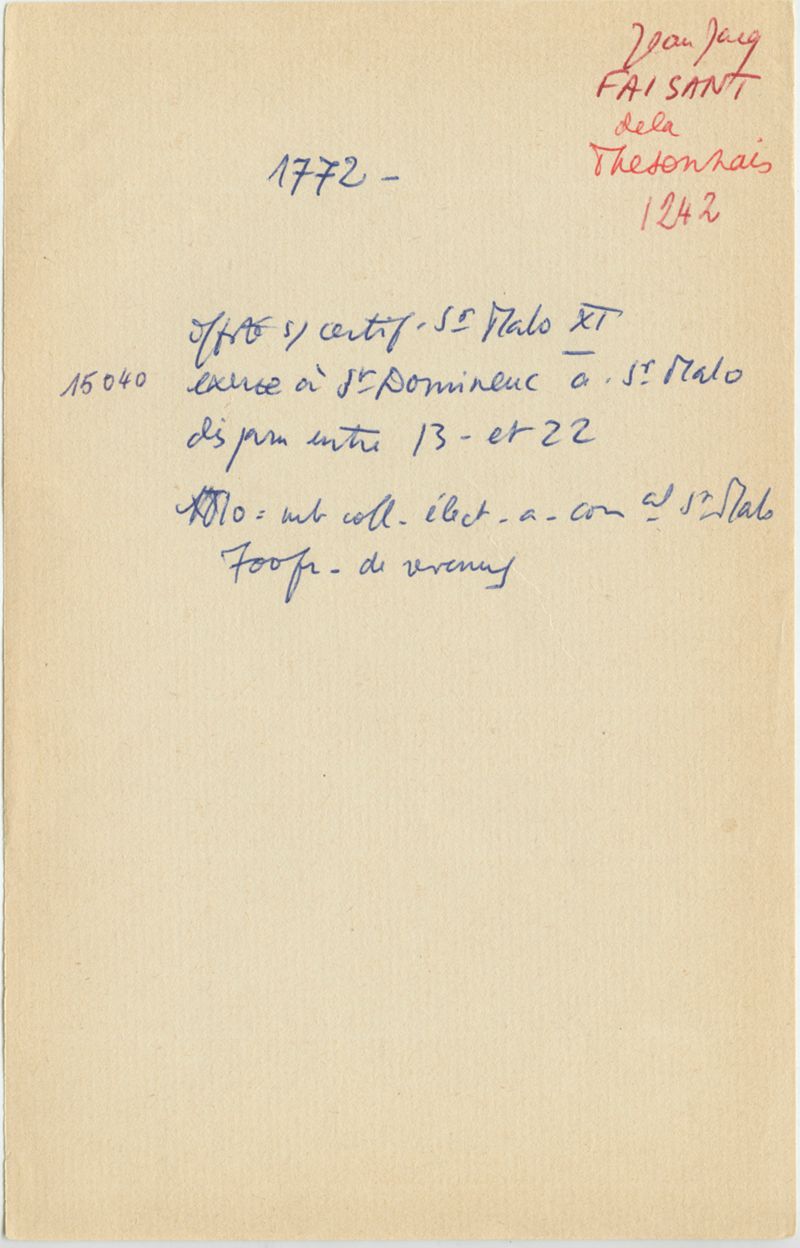 Jean Jacq
FAISANT
de la
Thesonnais
1242
1772 -
offté s/ certif. St Malo XI
15040 exerce à St Domineuc a. St Malo
disparu entre 13 - et 22
1810 = mb coll. élect. a. com al St Malo
700 fr. de revenus